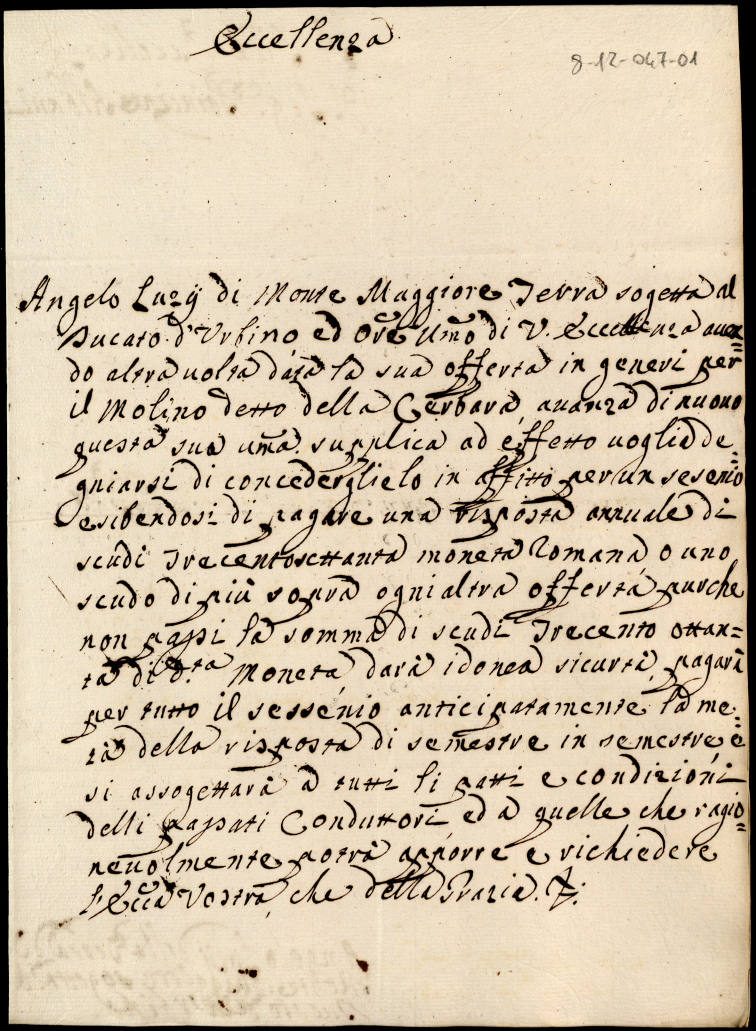 Eccellenza
8-12-047-01
Angelo Luzÿ di Monte Maggiore Terra sogetta al
Ducato d'Urbino ed Ore Umo di V. Eccellenza auen=
do altra uolta data la sua offerta in generi per
il Molino detto della Cerbara, auanza di nuouo
questa sua uma supplica ad effetto uoglia de=
gniarsi di concederglielo in affitto per un sesenio
esibendosi di pagare una risposta annuale di
scudi Trecentosettanta moneta Romana, o uno
scudo di più sopra ogni altra offerta, purche
non passi la somma di scudi Trecento ottan=
ta di d.ta Moneta darà idonea sicurtà, pagarà
per tutto il sessenio anticipatamente la me=
tà della risposta di semestre in semestre, e
si assogettarà a tutti li patti e condizioni
delli passati Conduttori ed a quelle che ragio=
neuolmente potrà apporre e richiedere
l'Ecca Vostra, che della Grazia.